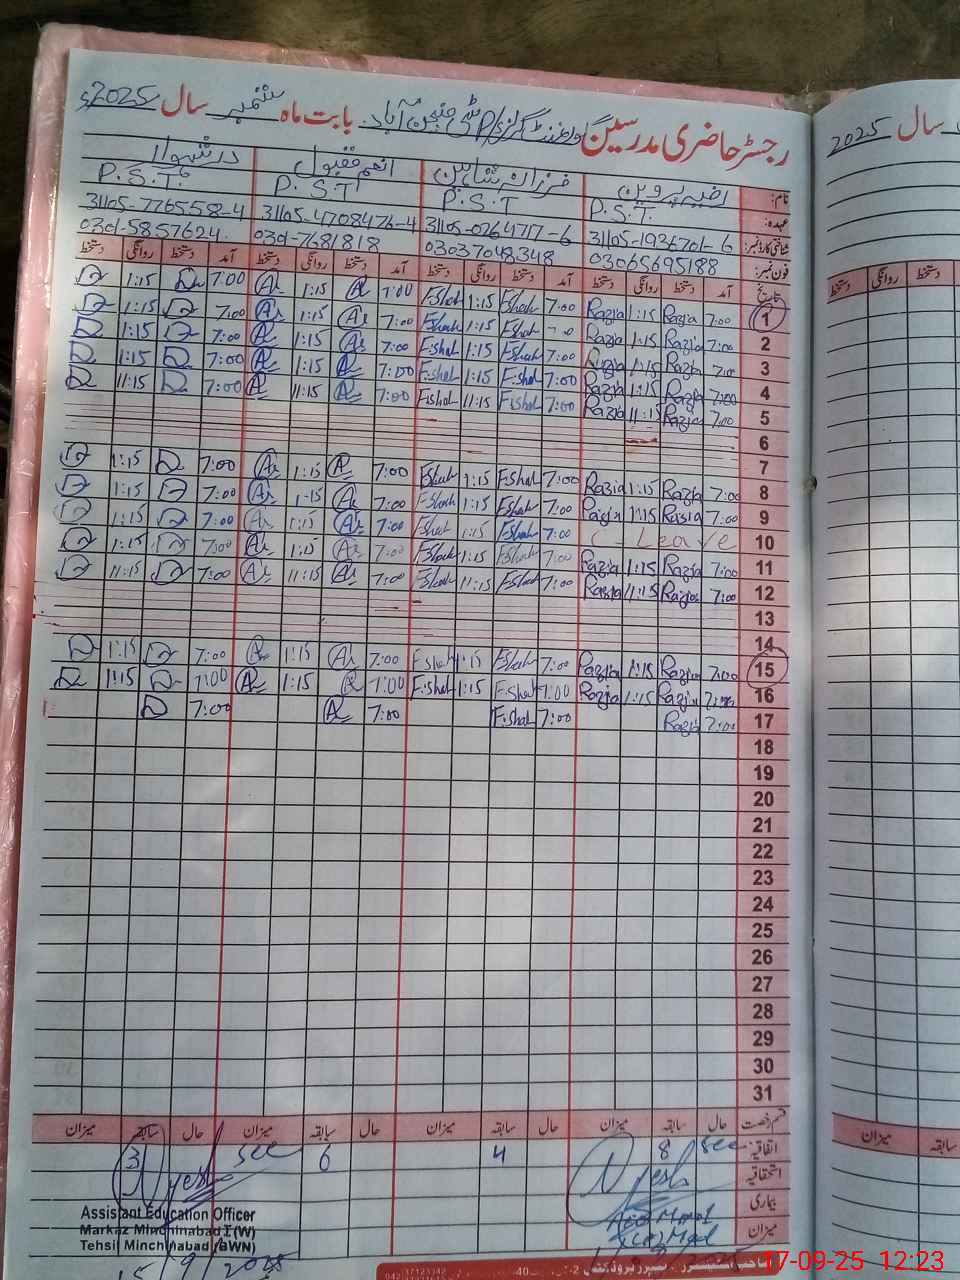 رجسٹر حاضری مدرسین گورنمنٹ گرلز P/S سٹی منچن آباد بابت ماہ ستمبر سال 2025ء
نام: رضیہ پروین فرزانہ شاہین انعم مقبول در شہوار
عہدہ: P.S.T. P.S.T P.S.T P.S.T.
شناختی کارڈ نمبر: 31105-1936701-6 31105-0264717-6 31105-4708476-4 31105-7765558-4
فون نمبر: 03065695188 03037048348 0301-7681818 0301-5857624
تاریخ آمد دستخط روانگی دستخط آمد دستخط روانگی دستخط آمد دستخط روانگی دستخط آمد دستخط روانگی دستخط
1 7:00 Razia 1:15 Razia 7:00 F.Shah 1:15 F.Shah 7:00 1:15 7:00 1:15
2 7:00 Razia 1:15 Razia 7:00 F.Shah 1:15 F.Shah 7:00 1:15 7:00 1:15
3 7:00 Razia 1:15 Razia 7:00 F.Shah 1:15 F.Shah 7:00 1:15 7:00 1:15
4 7:00 Razia 1:15 Razia 7:00 F.Shah 1:15 F.Shah 7:00 1:15 7:00 1:15
5 7:00 Razia 11:15 Razia 7:00 F.Shah 11:15 F.Shah 7:00 11:15 7:00 11:15
6
7
8 7:00 Razia 1:15 Razia 7:00 F.Shah 1:15 F.Shah 7:00 1:15 7:00 1:15
9 7:00 Razia 1:15 Razia 7:00 F.Shah 1:15 F.Shah 7:00 1:15 7:00 1:15
10 C-Leave 7:00 F.Shah 1:15 F.Shah 7:00 1:15 7:00 1:15
11 7:00 Razia 1:15 Razia 7:00 F.Shah 1:15 F.Shah 7:00 1:15 7:00 1:15
12 7:00 Razia 11:15 Razia 7:00 F.Shah 11:15 F.Shah 7:00 11:15 7:00 11:15
13
14
15 7:00 Razia 1:15 Razia 7:00 F.Shah 1:15 F.Shah 7:00 1:15 7:00 1:15
16 7:00 Razia 1:15 Razia 7:00 F.Shah 1:15 F.Shah 7:00 1:15 7:00 1:15
17 7:00 Razia 7:00 F.Shah 7:00 7:00
18
19
20
21
22
23
24
25
26
27
28
29
30
31
قسم رخصت حال سابقہ میزان حال سابقہ میزان حال سابقہ میزان حال سابقہ میزان
اتفاقیہ See 8 4 6 See 3
استحقاقیہ
بیماری
میزان
Assistant Education Officer
Markaz Minchinabad I (W)
Tehsil Minchinabad (BWN)
15/9/2025
17-09-25 12:23
سال 2025
دستخط روانگی دستخط
سابقہ میزان